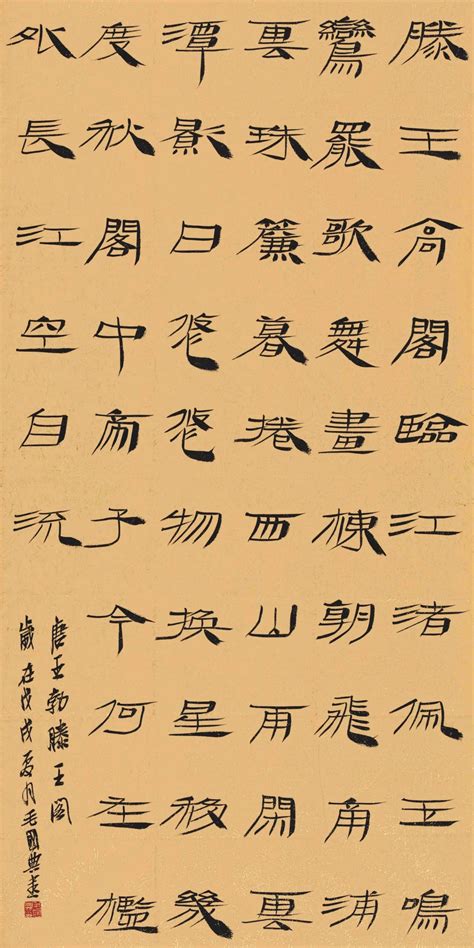 滕王高閣臨江渚佩玉鳴
鸞罷歌舞畫棟朝飛南浦
雲珠簾暮捲西山雨閑雲
潭影日悠悠物換星移幾
度秋閣中帝子今何在檻
外長江空自流
唐王勃滕王閣
歲在戊戌夏月毛國典書